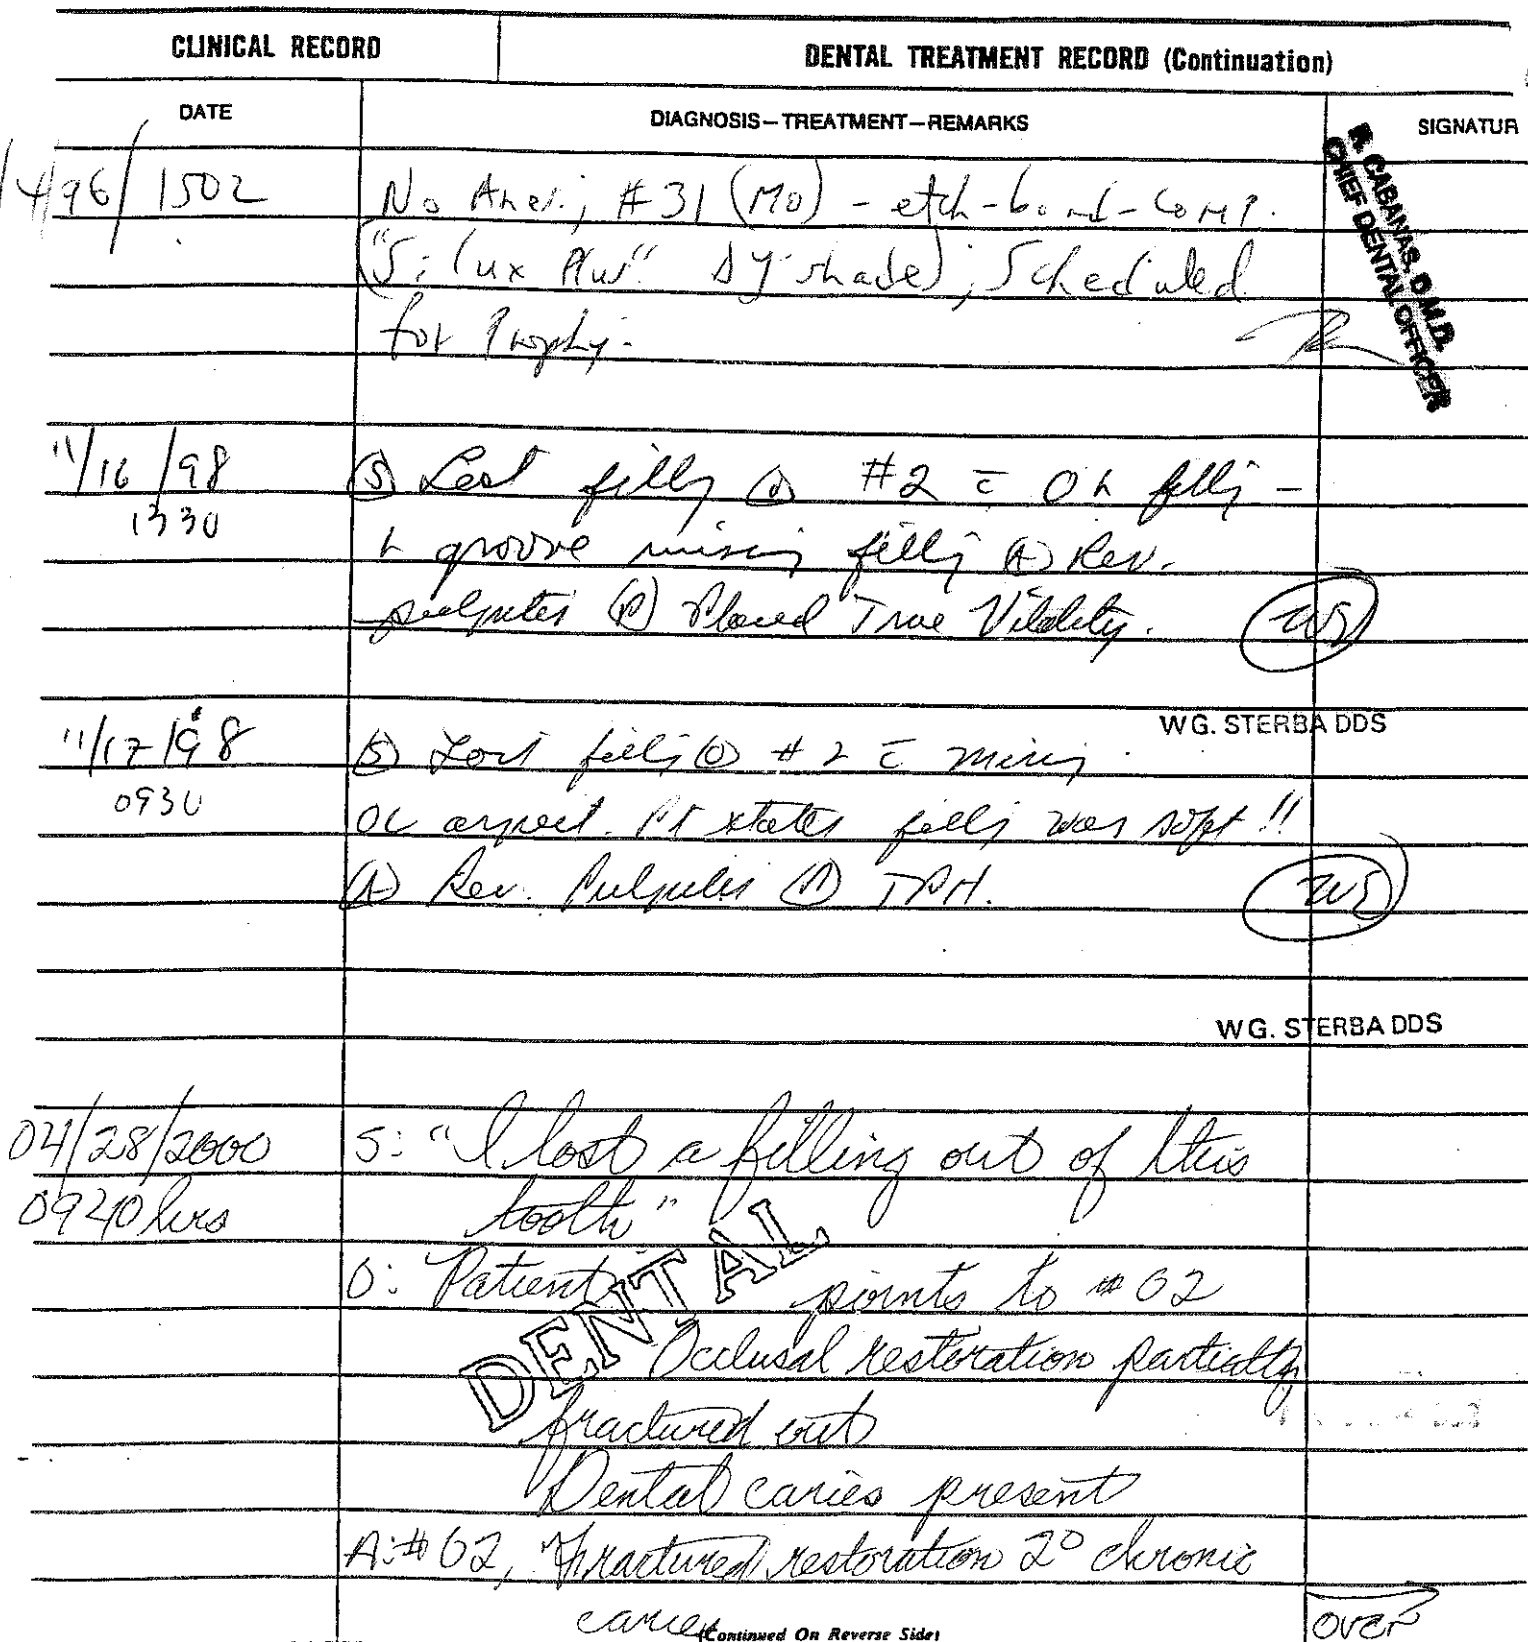 CLINICAL RECORD
DENTAL TREATMENT RECORD (Continuation)
DATE
DIAGNOSIS—TREATMENT—REMARKS
SIGNATUR
4/96/ 1502
No Anes.; #31 (MO) - etch-bond-comp.
("Silux Plus" DY shade); Scheduled
for Prophy.
R. CABANAS, D.M.D.
CHIEF DENTAL OFFICER
11/16/98
1330
(S) Lost filling (O) #2 c̄ OL filling -
L groove missing filling (A) Rev.
pulpitis (P) Placed True Vitality.
WS
WG. STERBA DDS
11/17/98
0930
(S) Lost filling (O) #2 c̄ missing
OL aspect. Pt states filling was soft!!
(A) Rev. Pulpitis (P) TPH.
WS
WG. STERBA DDS
04/28/2000
0920 hrs
S: "I lost a filling out of this
tooth"
DENTAL
O: Patient points to #02
Occlusal restoration partially
fractured out
Dental caries present
A: #02, Fractured restoration 2° chronic
caries
(Continued On Reverse Side)
over